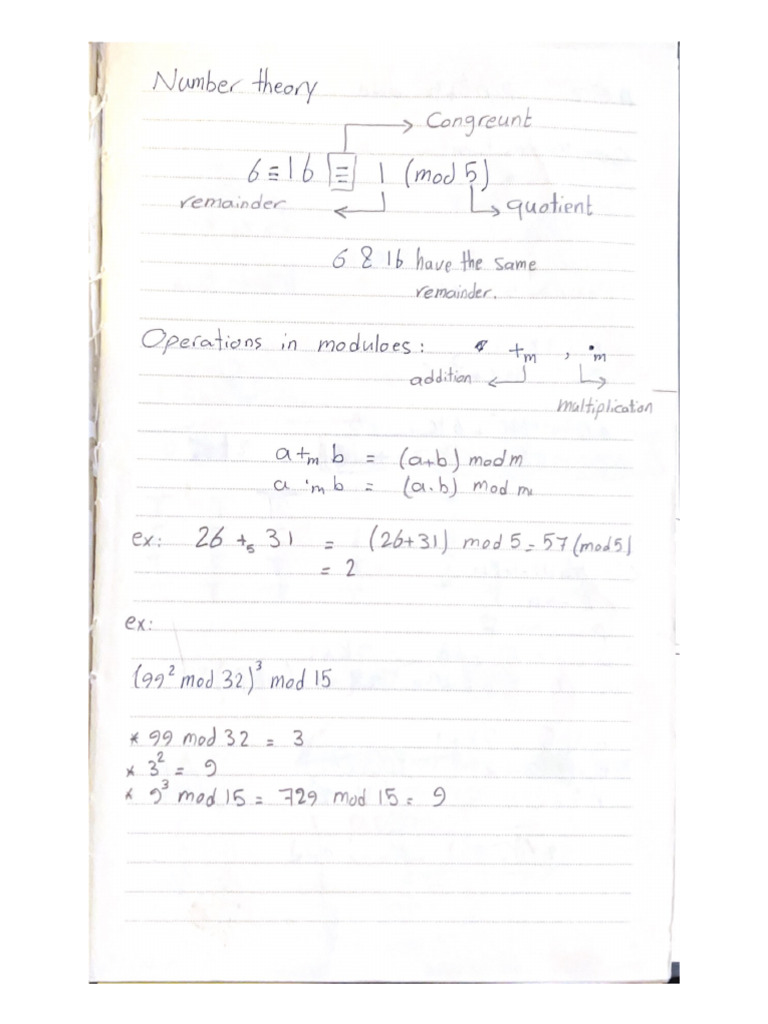 Number theory
Congreunt
6 ≡ 16 ≡ 1 (mod 5)
remainder
quotient
6 & 16 have the same
remainder.
Operations in moduloes: +m , ·m
addition
multiplication
a +m b = (a+b) mod m
a ·m b = (a.b) mod m
ex: 26 +5 31 = (26+31) mod 5 = 57 (mod 5)
= 2
ex:
(99² mod 32)³ mod 15
* 99 mod 32 = 3
* 3² = 9
* 9³ mod 15 = 729 mod 15 = 9